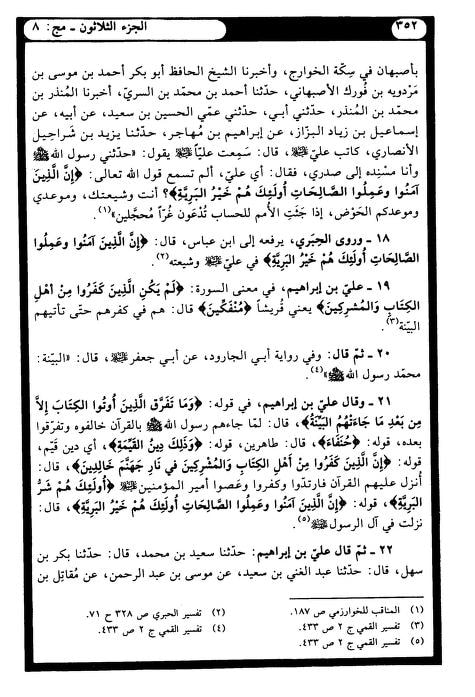 ٣٥٢
الجزء الثلاثون ـ مج: ٨
بأصبهان في سِكّة الخوارج، وأخبرنا الشيخ الحافظ أبو بكر أحمد بن موسى بن
مَرْدويه بن فُورك الأصبهاني، حدّثنا أحمد بن محمّد بن السريّ، أخبرنا المُنذر بن
محمّد بن المُنذر، حدّثني أبي، حدّثني عمّي الحسين بن سعيد، عن أبيه، عن
إسماعيل بن زياد البزّاز، عن إبراهيم بن مُهاجر، حدّثنا يزيد بن شَراحيل
الأنصاري، كاتب عليّ ﷺ، قال: سَمِعت عليّاً ﷺ يقول: «حدّثني رسول الله ﷺ
وأنا مسْنِده إلى صدري، فقال: أي عليّ، ألم تسمع قول الله تعالى: ﴿إِنَّ الَّذِينَ
آمَنُوا وَعَمِلُوا الصَّالِحَاتِ أُولَئِكَ هُمْ خَيْرُ البَرِيَّةِ﴾؟ أنت وشيعتك، وموعدي
وموعدكم الحَوْض، إذا جَثَتِ الأُمم للحساب تُدْعَون غُرّاً مُحجَّلين»(١).
١٨ ـ وروى الحِبَري، يرفعه إلى ابن عباس، قال: ﴿إِنَّ الَّذِينَ آمَنُوا وعَمِلُوا
الصَّالِحَاتِ أُولَئِكَ هُمْ خَيْرُ البَرِيَّةِ﴾ في عليّ ﷺ وشيعته(٢).
١٩ ـ علي بن إبراهيم، في معنى السورة: ﴿لَمْ يَكُنِ الَّذِينَ كَفَرُوا مِنْ أَهْلِ
الكِتَابِ وَالمُشْرِكِينَ﴾ يعني قُريشاً ﴿مُنْفَكِّينَ﴾ قال: هم في كفرهم حتّى تأتيهم
البيّنة(٣).
٢٠ ـ ثمّ قال: وفي رواية أبي الجارود، عن أبي جعفر ﷺ، قال: «البيّنة:
محمّد رسول الله ﷺ»(٤).
٢١ ـ وقال عليّ بن إبراهيم، في قوله: ﴿وَمَا تَفَرَّقَ الَّذِينَ أُوتُوا الكِتَابَ إِلاَّ
مِن بَعْدِ مَا جَاءَتْهُمُ البَيِّنَةُ﴾، قال: لمّا جاءهم رسول الله ﷺ بالقرآن خالفوه وتفرّقوا
بعده، قوله: ﴿حُنَفَاءَ﴾، قال: طاهرين، قوله: ﴿وَذَلِكَ دِينُ القَيِّمَةِ﴾، أي دين قيّم،
قوله: ﴿إِنَّ الَّذِينَ كَفَرُوا مِنْ أَهْلِ الكِتَابِ وَالمُشْرِكِينَ فِي نَارِ جَهَنَّمَ خَالِدِينَ﴾، قال:
أُنزل عليهم القرآن فارتدّوا وكفروا وعَصوا أمير المؤمنين ﷺ ﴿أُولَئِكَ هُمْ شَرُّ
البَرِيَّةِ﴾، قوله: ﴿إِنَّ الَّذِينَ آمَنُوا وعَمِلُوا الصَّالِحَاتِ أُولَئِكَ هُمْ خَيْرُ البَرِيَّةِ﴾، قال:
نزلت في آل الرسول ﷺ(٥).
٢٢ ـ ثمّ قال عليّ بن إبراهيم: حدّثنا سعيد بن محمد، قال: حدّثنا بكر بن
سهل، قال: حدّثنا عبد الغني بن سعيد، عن موسى بن عبد الرحمن، عن مُقاتِل بن
(١) المناقب للخوارزمي ص ١٨٧.
(٢) تفسير الحبري ص ٣٢٨ ح ٧١.
(٣) تفسير القمي ج ٢ ص ٤٣٣.
(٤) تفسير القمي ج ٢ ص ٤٣٣.
(٥) تفسير القمي ج ٢ ص ٤٣٣.